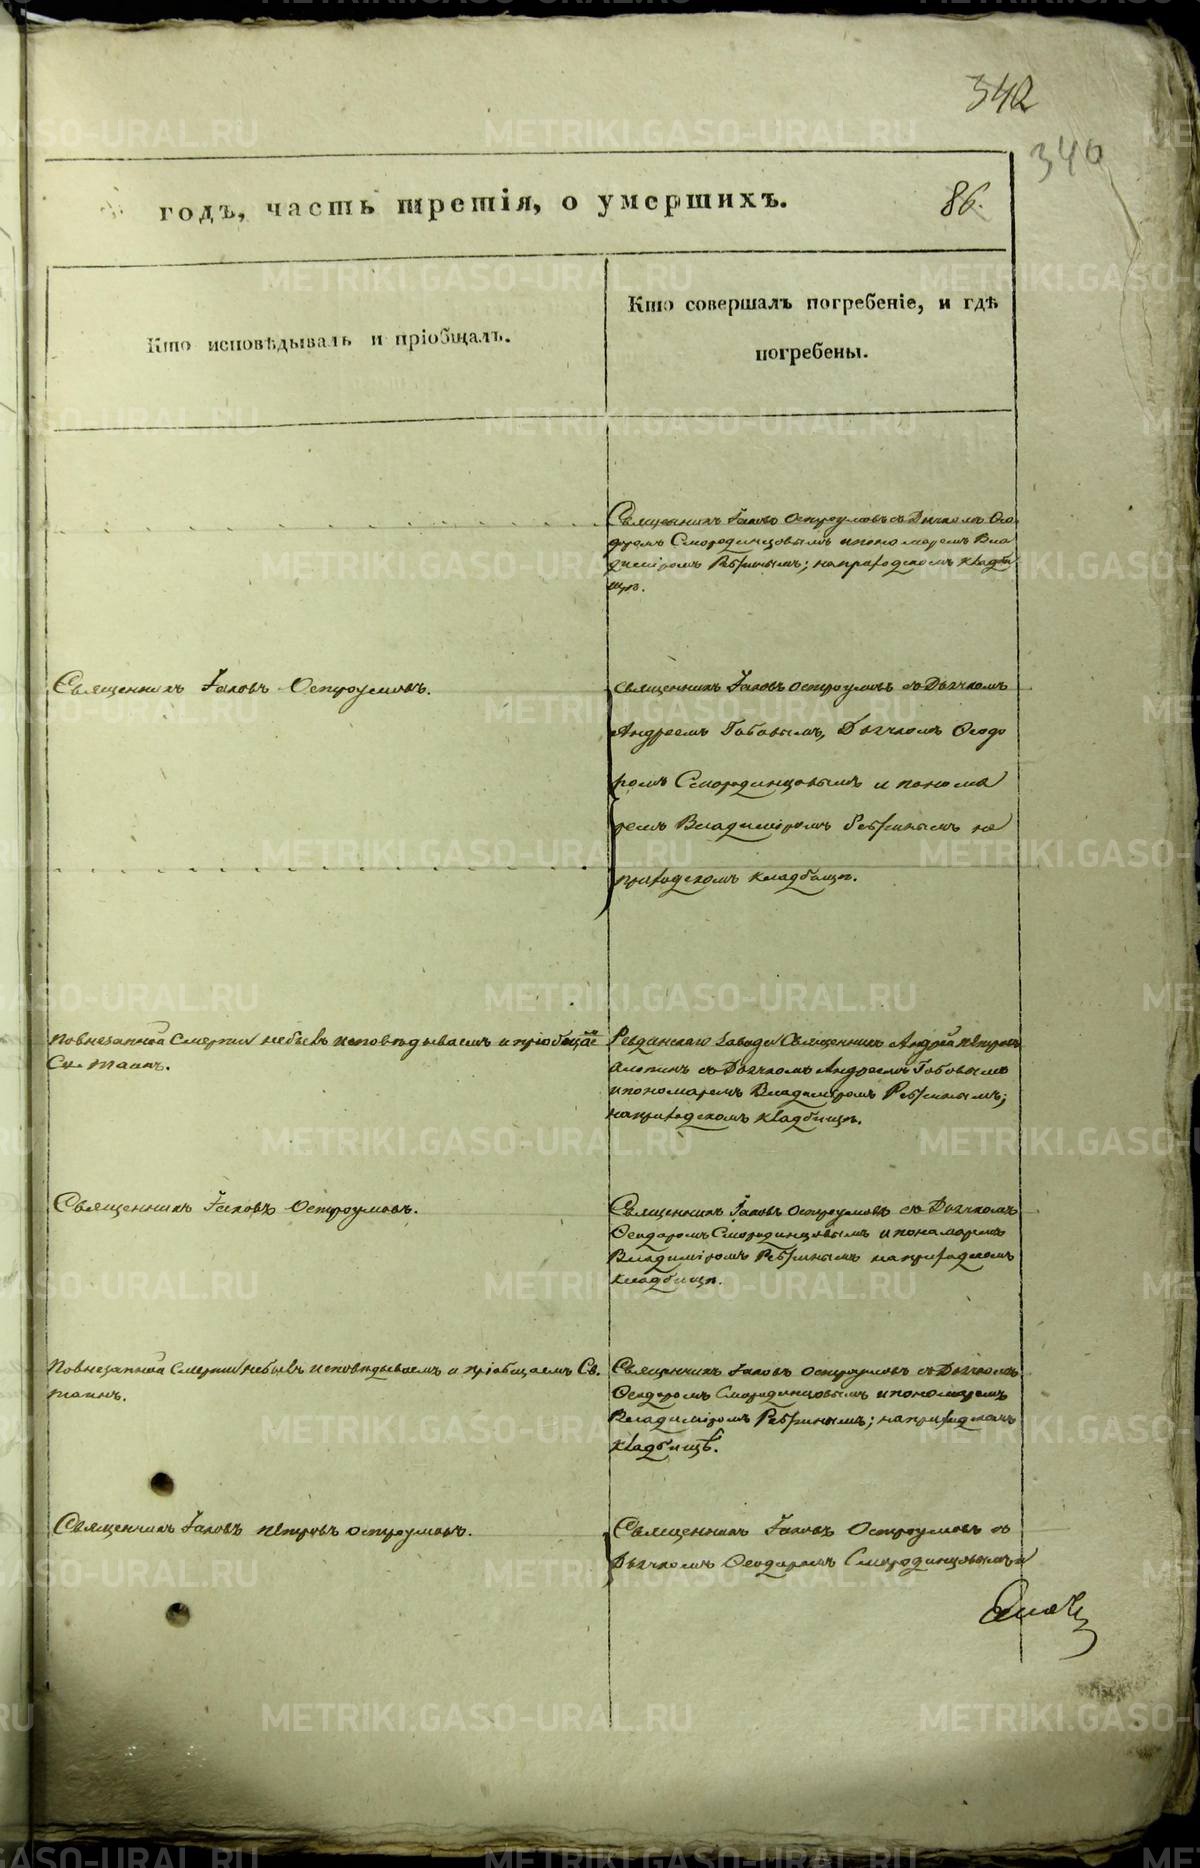 342
340
годъ, часть третія, о умершихъ.
86.
Кто исповѣдывалъ и пріобщалъ.
Кто совершалъ погребеніе, и гдѣ
погребены.
Священникъ Іаковъ Остроумовъ съ Дьячкомъ Ѳео
доромъ Смородинцовымъ и пономаремъ Вла
диміромъ Ребринымъ; на приходскомъ кладби
щѣ.
Священникъ Іаковъ Остроумовъ.
Священникъ Іаковъ Остроумовъ съ Дьячкомъ
Андреемъ Бабовымъ, Дьячкомъ Ѳеодо
ромъ Смородинцовымъ и понома
ремъ Владиміромъ Ребринымъ на
приходскомъ кладбищѣ.
По внезапной смерти не былъ исповѣдываемъ и пріобщае
Св. Таинъ.
Ревдинскаго завода Священникъ Андрей Петровъ
съ Дьячкомъ Андреемъ Бабовымъ
и пономаремъ Владиміромъ Ребринымъ;
на приходскомъ кладбищѣ.
Священникъ Іаковъ Остроумовъ.
Священникъ Іаковъ Остроумовъ съ Дьячкомъ
Ѳеодоромъ Смородинцовымъ и пономаремъ
Владиміромъ Ребринымъ на приходскомъ
кладбищѣ.
По внезапной смерти не былъ исповѣдываемъ и пріобщаемъ Св.
Таинъ.
Священникъ Іаковъ Остроумовъ съ Дьячкомъ
Ѳеодоромъ Смородинцовымъ и пономаремъ
Владиміромъ Ребринымъ; на приходскомъ
кладбищѣ.
Священникъ Іаковъ Петровъ Остроумовъ.
Священникъ Іаковъ Остроумовъ съ
Дьячкомъ Ѳеодоромъ Смородинцовымъ и